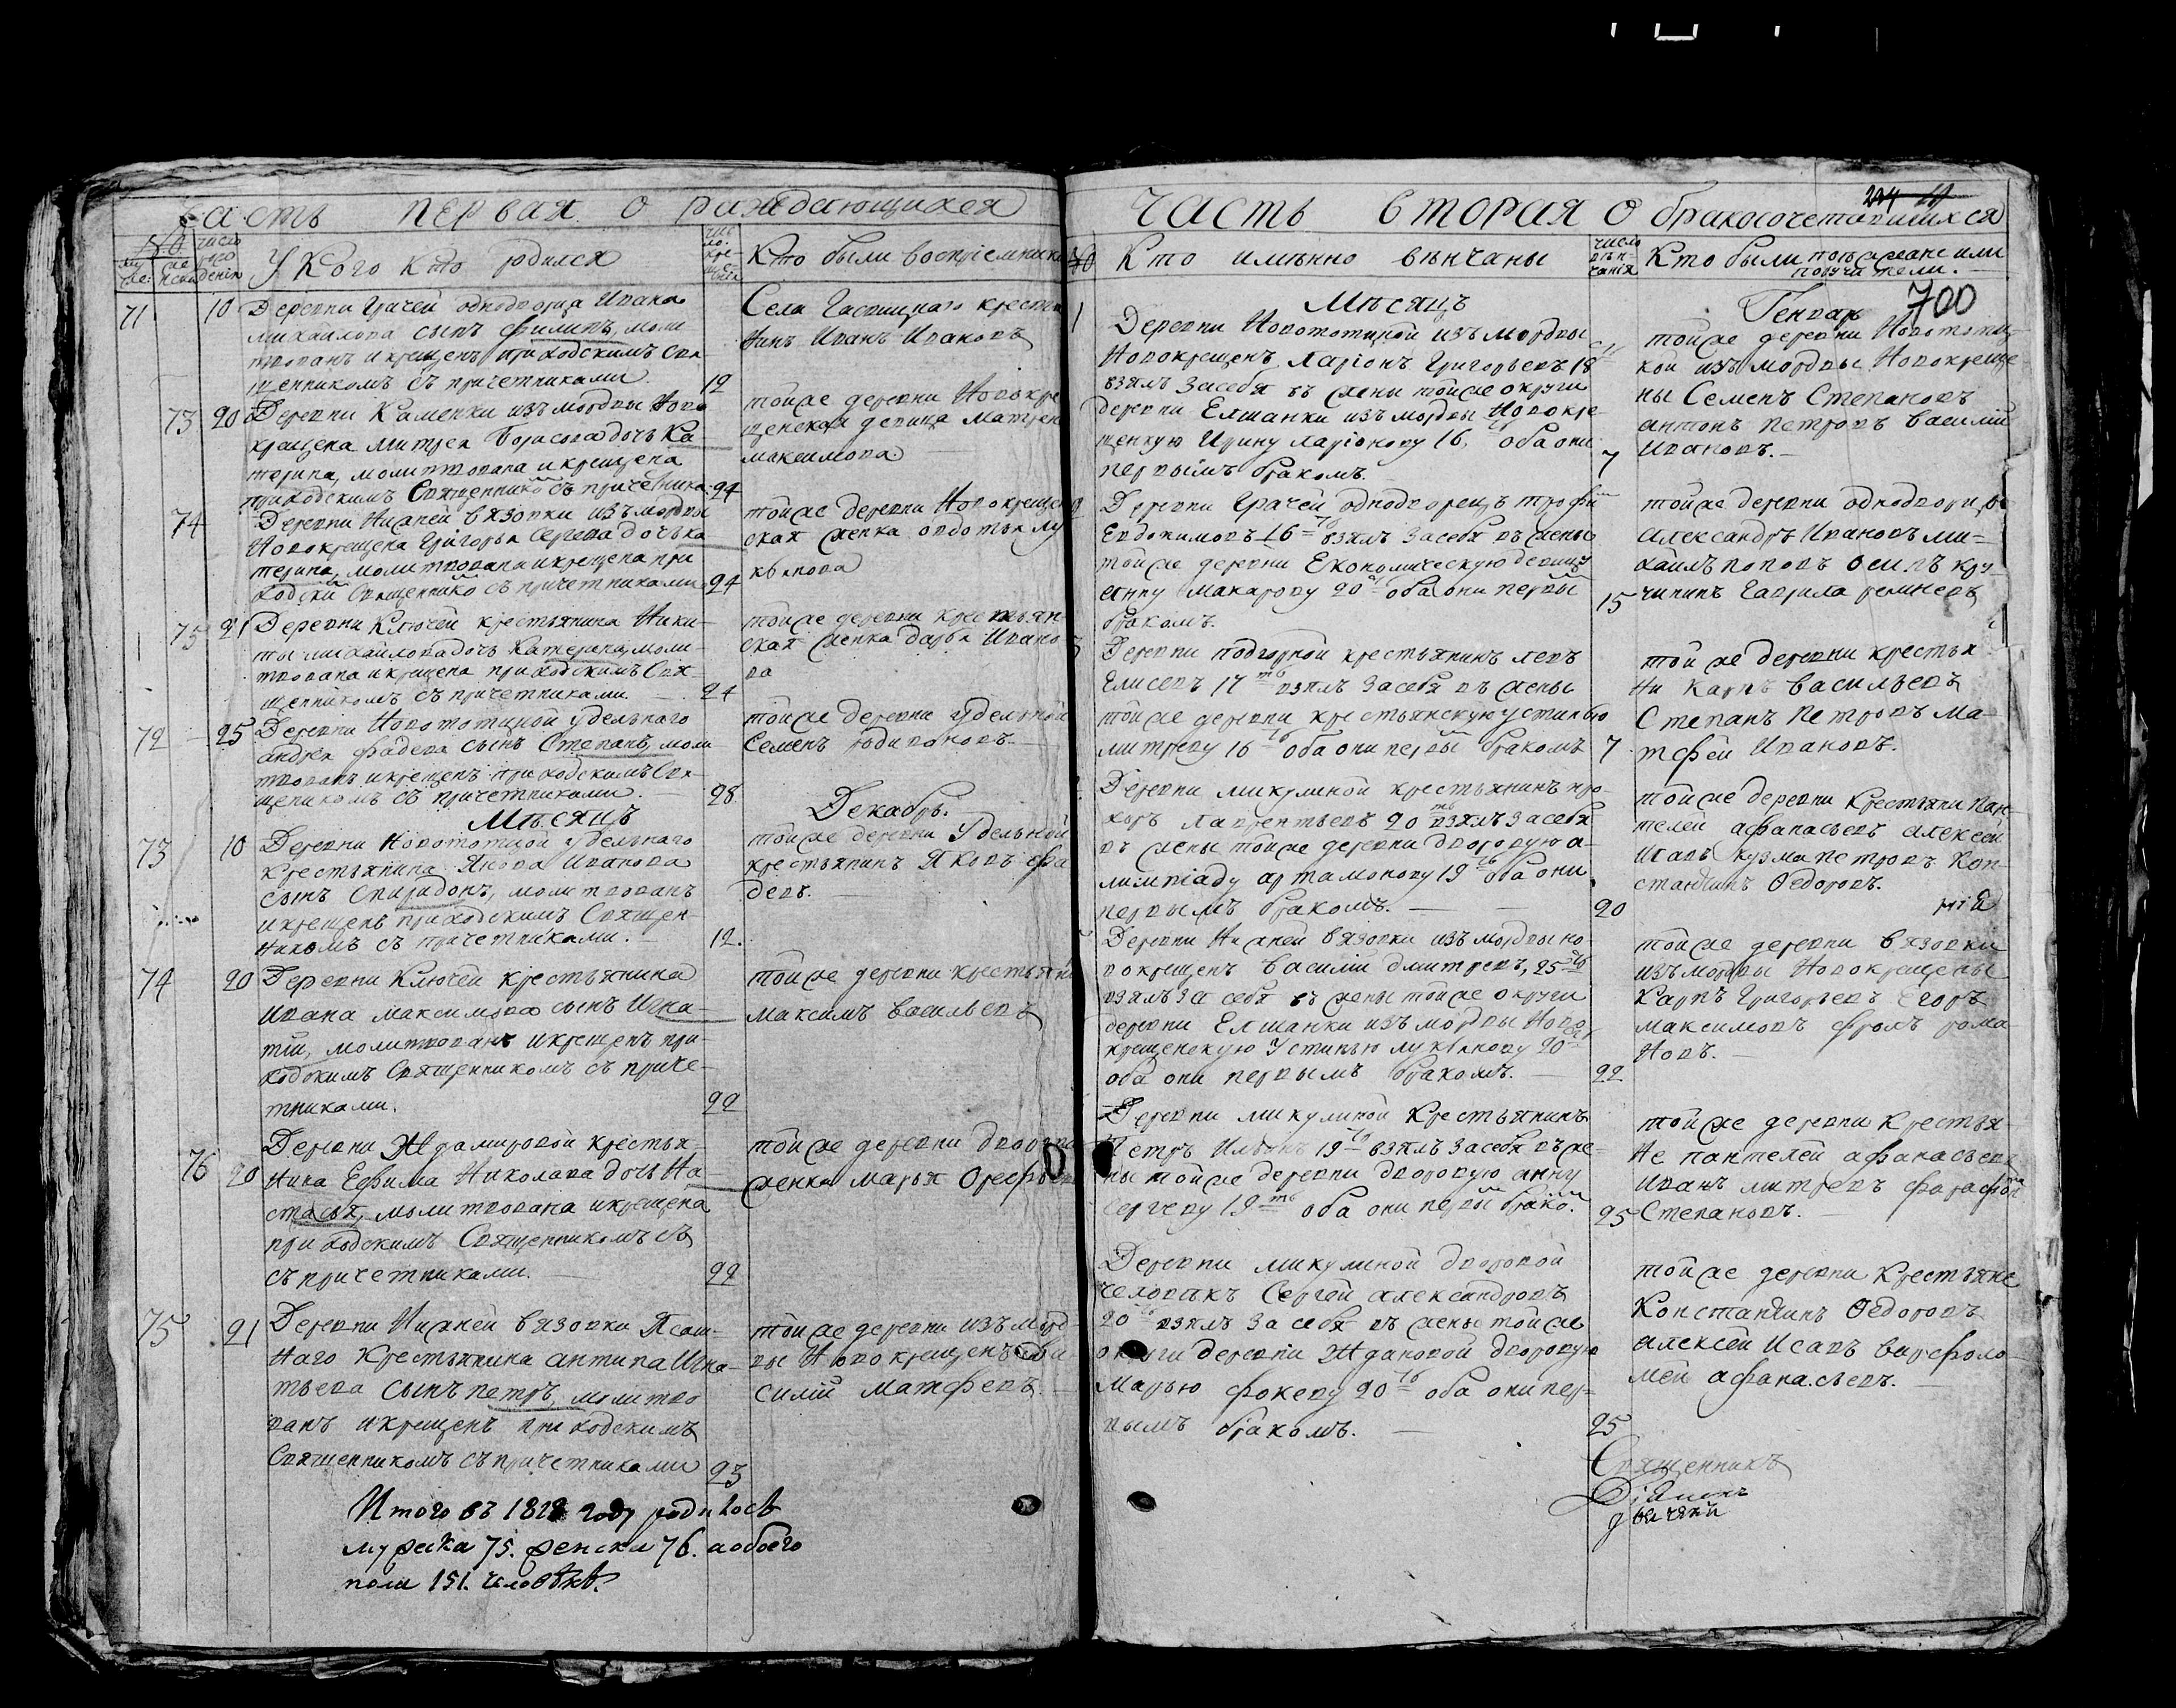 Часть первая о раждающихся
№
число рождения
У кого кто родился
число крещения
Кто были восприемники
71 10 Деревни Грачей однодворца Ивана
Михайлова сынъ Филипъ, моли
твованъ и крещенъ приходскимъ Свя
щенникомъ съ причетниками. 12
Села Гаврицкаго крестья
нинъ Иванъ Ивановъ
73 20 Деревни Каменки изъ мордвы Ново
крещена Митрея Борисова дочь Ка-
терина, молитвована и крещена
приходскимъ Священнико съ причетника. 24
тойже деревни Новокре
щенская девица Матрена
Максимова.
74 Деревни Нижней Вязовки изъ мордвы
Новокрещена Григорья Сергева дочь Ка
терина, молитвована и крещена при
ходски Священнико съ причетниками 24
тойже деревни Новокрещен
ская женка Овдотья Лу
кьянова
75 21 Деревни Ключей крестьянина Ники-
ты Михайлова дочь Катерина, моли-
твована и крещена приходскимъ Свя-
щенникомъ съ причетниками. 24
тойже деревни крестьян
ская женка Дарья Ивано
ва
72 25 Деревни Новотоцкой удельнаго
Андрея Фадева сынъ Степанъ, моли
твованъ и крещенъ приходскимъ Свя-
щеникомъ съ причетниками. 28
тойже деревни удельной
Семенъ Родивоновъ.
Месяцъ Декабрь.
73 10 Деревни Новотоцкой удельнаго
Крестьянина Якова Иванова
сынъ Спиридонъ, молитвованъ
и крещенъ приходскимъ Священ-
никомъ съ причетниками. 12.
тойже деревни Удельной
крестьянинъ Яковъ Фа
девъ.
74 20 Деревни Ключей крестьянина
Ивана Максимова сынъ Игна-
тiй, молитвованъ и крещенъ при-
ходскимъ Священникомъ съ приче-
тниками. 22
тойже деревни крестьяни
Максимъ Васильевъ
76 20 Деревни Ждамировой крестья-
нина Ефима Николава дочь На-
стасья, молитвована и крещена
приходскимъ Священникомъ съ
съ причетниками. 22
тойже деревни дворова
женка Марья Орефьева
75 21 Деревни Нижней Вязовки Ясаш-
наго Крестьянина Антипа Игна-
тьева сынъ Петръ, молитво
ванъ и крещенъ приходскимъ
Священникомъ съ причетниками 23
тойже деревни изъ морд
вы Новокрещенъ Ва
силiй Матфевъ.
Итого въ 1828 году родилось
мужеска 75. женска 76. а обоего
пола 151. человекъ.
Часть вторая о бракосочетавшихся
№
Кто имянно венчаны
число венчания
Кто были поезжане или
поручители.
700
Месяцъ Генварь
1 Деревни Новотоцкой изъ мордвы
Новокрещенъ Ларiонъ Григорьевъ 18
взялъ за себя въ жены тойже округи
деревни Елшанки изъ мордвы Новокре
щенкую Ирину Ларiонову 16. оба они
первымъ бракомъ. 7
тойже деревни Новотоц-
кой изъ мордвы Новокреще
ны Семенъ Степановъ
Антонъ Петровъ Василiй
Ивановъ.
2 Деревни Грачей однодворецъ Трофи
Евдокимовъ 16 взялъ за себя въ жены
тойже деревни Економическую девицу
Анну Макарову 20 оба они первы
бракомъ. 15
тойже деревни однодворцы
Александръ Ивановъ Ми-
хайлъ Поповъ Осипъ Кру-
чининъ Гаврила
3 Деревни Подгорной крестьянинъ Левъ
Елисевъ 17 взялъ за себя въ жены
тойже деревни крестьянскую Устинью
Митреву 16 оба они первы бракомъ 7
тойже деревни крестья
ни Карпъ Васильевъ
Степанъ Петровъ Ма-
тфей Ивановъ.
Деревни Микулиной крестьянинъ Про-
хоръ Лаврентьевъ 20 взялъ за себя
въ жены тойже деревни дворовую А-
лимпiаду Артамонову 19 оба они
первымъ бракомъ. 20
тойже деревни крестьяни Пан-
телей Афанасьевъ Алексей
Исавъ Кузма Петровъ Кон-
стантинъ Федоровъ.
Деревни Нижней Вязовки изъ мордвы но-
вокрещенъ Василiй Дмитревъ, 25
взялъ за себя въ жены тойже округи
деревни Елшанки изъ мордвы Ново
крещенскую Устинью Лукьянову 20
оба они первымъ бракомъ. 22
тойже деревни Вязовки
изъ мордвы Новокрещены
Карпъ Григорьевъ Егоръ
Максимовъ Фролъ Рома-
новъ.
Деревни Микулиной Крестьянинъ
Петръ Ильинъ 19 взялъ за себя въ же-
ны тойже деревни дворовую Анну
Сергеву 19 оба они первы брако. 25
тойже деревни крестья-
не Пантелей Афанасьевъ
Иванъ Митревъ
Степановъ.
Деревни Микулиной дворовой
человекъ Сергей Александровъ
20 взялъ за себя въ жены тойже
округи деревни Ждановой дворовую
Марью Фокеву 20 оба они пер-
вымъ бракомъ. 25
тойже деревни крестьяне
Константинъ Федоровъ
Алексей Исавъ Варфоло-
мей Афанасьевъ.
Священникъ
Дiаконъ